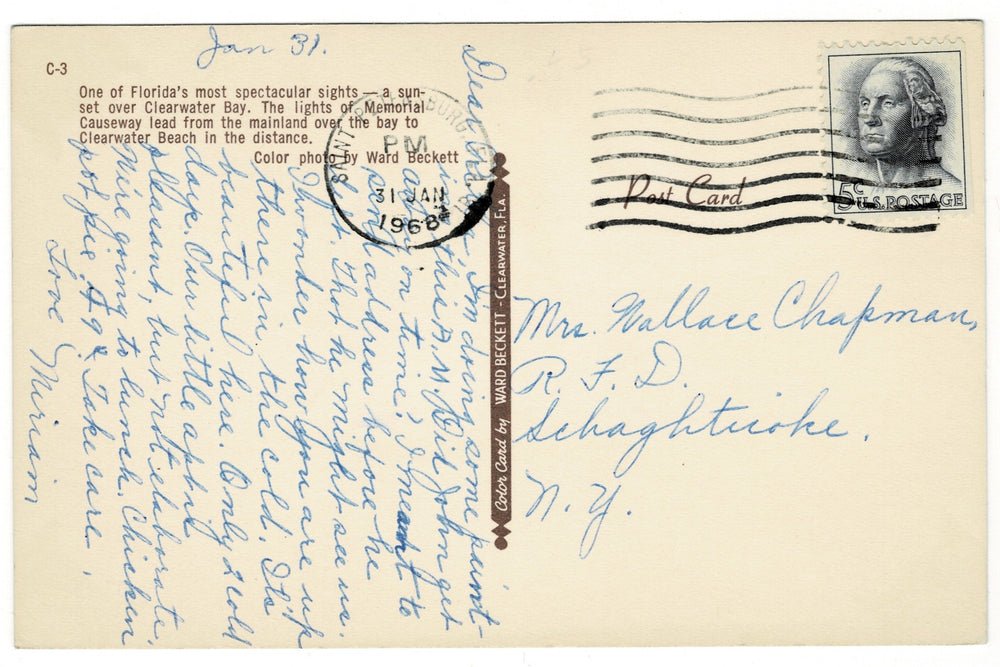 Jan 31.
C-3
One of Florida's most spectacular sights — a sun-
set over Clearwater Bay. The lights of Memorial
Causeway lead from the mainland over the bay to
Clearwater Beach in the distance.
Color photo by Ward Beckett
Dear I'm doing some paint-
ing this A.M. Did John get
away on time? I meant to
send address before he
left. Thot he might see us.
I wonder how you are up
there in the cold. It's
beautiful here. Only 2 cold
days. Our little apt is
pleasant, but not elaborate.
We're going to lunch. Chicken
pot pie 79¢. Take care.
Love Miriam
SAINT PETERSBURG, FLA.
PM
31 JAN
1968
Color Card by WARD BECKETT - CLEARWATER, FLA.
Post Card
5¢
U.S. POSTAGE
Mrs. Wallace Chapman,
R. F. D.
Schaghticoke.
N. Y.